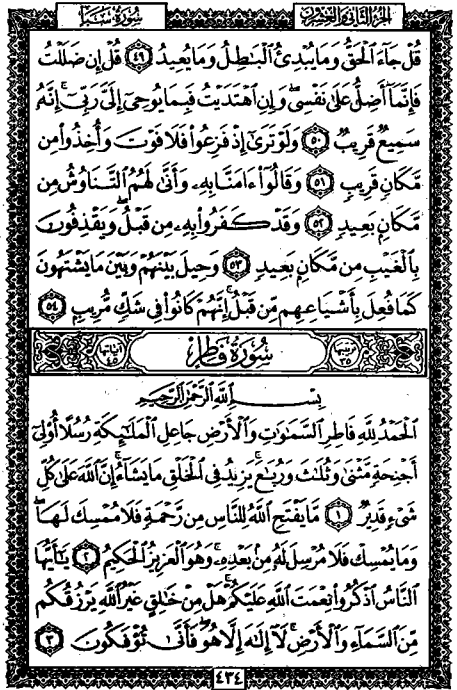 الجزء الثاني والعشرون
سورة سبأ
قُلْ جَآءَ ٱلْحَقُّ وَمَا يُبْدِئُ ٱلْبَٰطِلُ وَمَا يُعِيدُ ٤٩ قُلْ إِن ضَلَلْتُ
فَإِنَّمَآ أَضِلُّ عَلَىٰ نَفْسِى ۖ وَإِنِ ٱهْتَدَيْتُ فَبِمَا يُوحِىٓ إِلَىَّ رَبِّىٓ ۚ إِنَّهُۥ
سَمِيعٌ قَرِيبٌ ٥٠ وَلَوْ تَرَىٰٓ إِذْ فَزِعُوا۟ فَلَا فَوْتَ وَأُخِذُوا۟ مِن
مَّكَانٍ قَرِيبٍ ٥١ وَقَالُوٓا۟ ءَامَنَّا بِهِۦ وَأَنَّىٰ لَهُمُ ٱلتَّنَاوُشُ مِن
مَّكَانٍۭ بَعِيدٍ ٥٢ وَقَدْ كَفَرُوا۟ بِهِۦ مِن قَبْلُ ۖ وَيَقْذِفُونَ
بِٱلْغَيْبِ مِن مَّكَانٍۭ بَعِيدٍ ٥٣ وَحِيلَ بَيْنَهُمْ وَبَيْنَ مَا يَشْتَهُونَ
كَمَا فُعِلَ بِأَشْيَاعِهِم مِّن قَبْلُ ۚ إِنَّهُمْ كَانُوا۟ فِى شَكٍّ مُّرِيبٍۭ ٥٤
ترتيبها ٣٥
سورة فاطر
آياتها ٤٥
بِسْمِ ٱللَّهِ ٱلرَّحْمَٰنِ ٱلرَّحِيمِ
ٱلْحَمْدُ لِلَّهِ فَاطِرِ ٱلسَّمَٰوَٰتِ وَٱلْأَرْضِ جَاعِلِ ٱلْمَلَٰٓئِكَةِ رُسُلًا أُو۟لِىٓ
أَجْنِحَةٍ مَّثْنَىٰ وَثُلَٰثَ وَرُبَٰعَ ۚ يَزِيدُ فِى ٱلْخَلْقِ مَا يَشَآءُ ۚ إِنَّ ٱللَّهَ عَلَىٰ كُلِّ
شَىْءٍ قَدِيرٌ ١ مَّا يَفْتَحِ ٱللَّهُ لِلنَّاسِ مِن رَّحْمَةٍ فَلَا مُمْسِكَ لَهَا ۖ
وَمَا يُمْسِكْ فَلَا مُرْسِلَ لَهُۥ مِنۢ بَعْدِهِۦ ۚ وَهُوَ ٱلْعَزِيزُ ٱلْحَكِيمُ ٢ يَٰٓأَيُّهَا
ٱلنَّاسُ ٱذْكُرُوا۟ نِعْمَتَ ٱللَّهِ عَلَيْكُمْ ۚ هَلْ مِنْ خَٰلِقٍ غَيْرُ ٱللَّهِ يَرْزُقُكُم
مِّنَ ٱلسَّمَآءِ وَٱلْأَرْضِ ۚ لَآ إِلَٰهَ إِلَّا هُوَ ۖ فَأَنَّىٰ تُؤْفَكُونَ ٣
٤٣٤